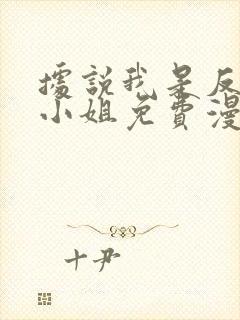 據說我是反
小姐免費漫
十尹